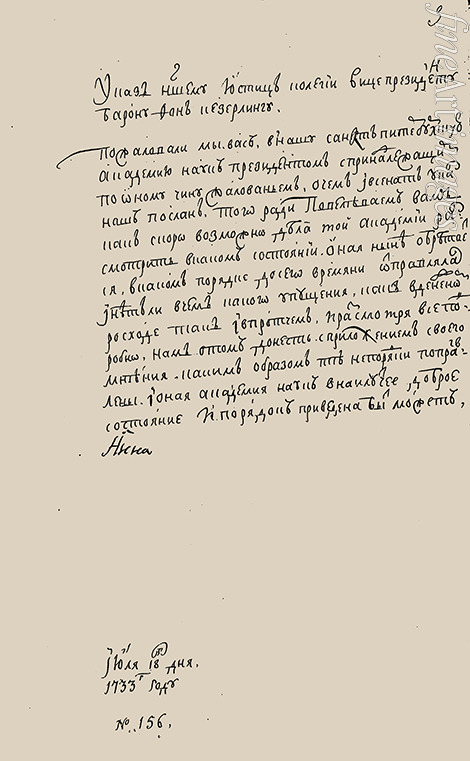 Указъ нш҃ему Юстицъ колегіи вице президенту
барону фонъ кезерлингу.
пожаловали мы васъ, внашу санктъпитебурхскую
академию наукъ президентомъ спринадлежащимъ
по оному чину жалованьемъ, очемъ ївсенатъ указъ
нашъ посланъ. того ради Повелѣваемъ вамъ
какъ скоро возможно дѣла той академіи раз
смотрить вкакомъ состояніи. оная нынѣ обрѣтает
ся, вкакомъ порядке досего времяни ѿправлялась
їнѣтъли вчемъ какого упущения, какъ вденежномъ
росходе такъ ївпротчемъ, ирасмотря все под
робно, намъ отомъ донесть сприложениемъ своего
мнѣния. какимъ образомъ тѣ исправ
лены. їоная академия наукъ внаилучее, доброе
состояние и порядокъ приведена быть можетъ,
Анна
їюля 18 дня,
1733 году
№. 156,
fineArtImages